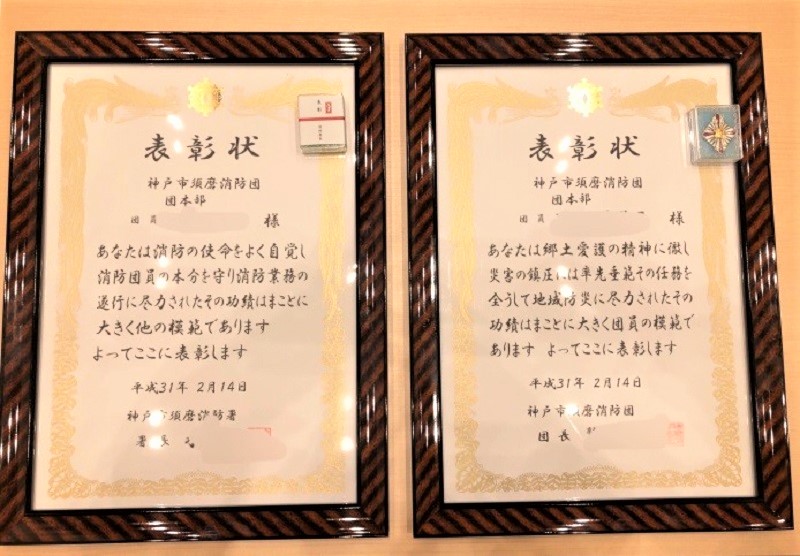 表彰状
神戸市須磨消防団
団本部
団員 様
あなたは消防の使命をよく自覚し
消防団員の本分を守り消防業務の
遂行に尽力されたその功績はまことに
大きく他の模範であります
よってここに表彰します
平成31年 2月14日
神戸市須磨消防署
署長
表彰状
神戸市須磨消防団
団本部
団員 様
あなたは郷土愛護の精神に徹し
災害の鎮圧には率先垂範その任務を
全うして地域防災に尽力されたその
功績はまことに大きく団員の模範で
あります よってここに表彰します
平成31年 2月14日
神戸市須磨消防団
団長